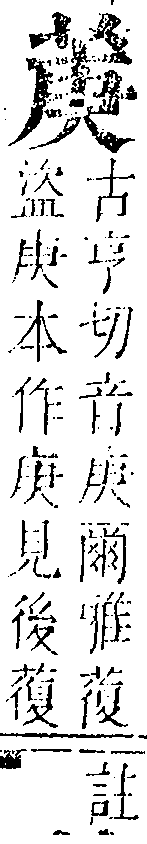 䓺
古亨切音庚爾雅蕧
盜庚本作庚見後蕧
註